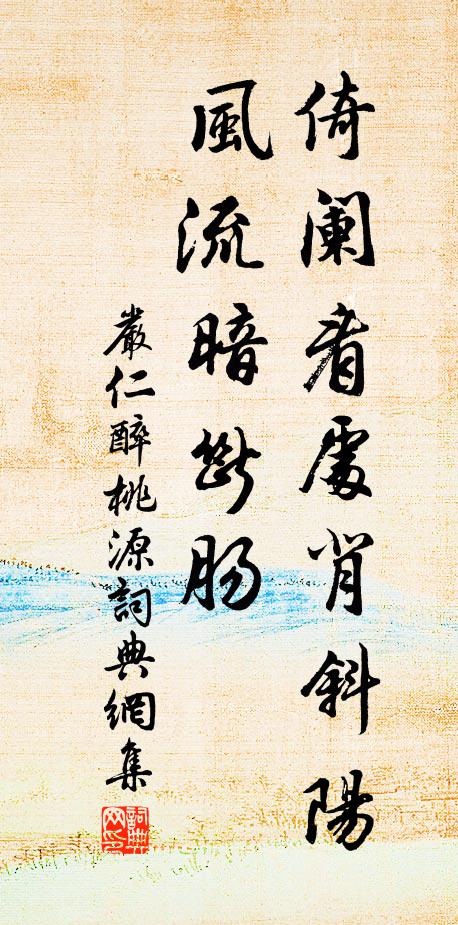 倚阑看處背斜陽
風流暗斷腸
嚴仁醉桃源詞典網集
詞典網印